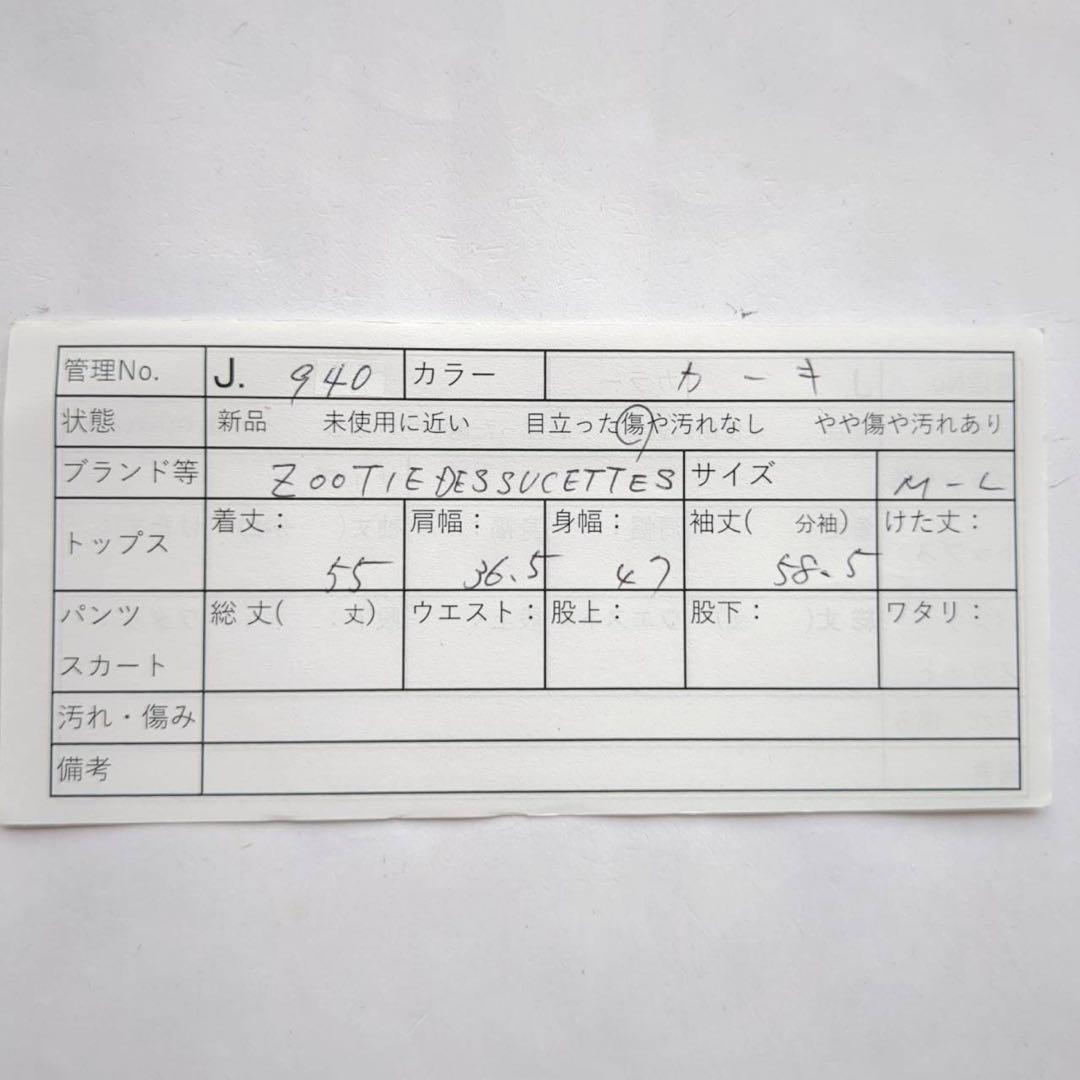 管理No. J. 940 カラー カーキ
状態 新品 未使用に近い 目立った傷や汚れなし やや傷や汚れあり
ブランド等 ZOOTIE DESSUCETTES サイズ M-L
トップス 着丈: 55 肩幅: 36.5 身幅: 47 袖丈( 分袖) 58.5 けた丈:
パンツ 総丈( 丈) ウエスト: 股上: 股下: ワタリ:
スカート
汚れ・傷み
備考